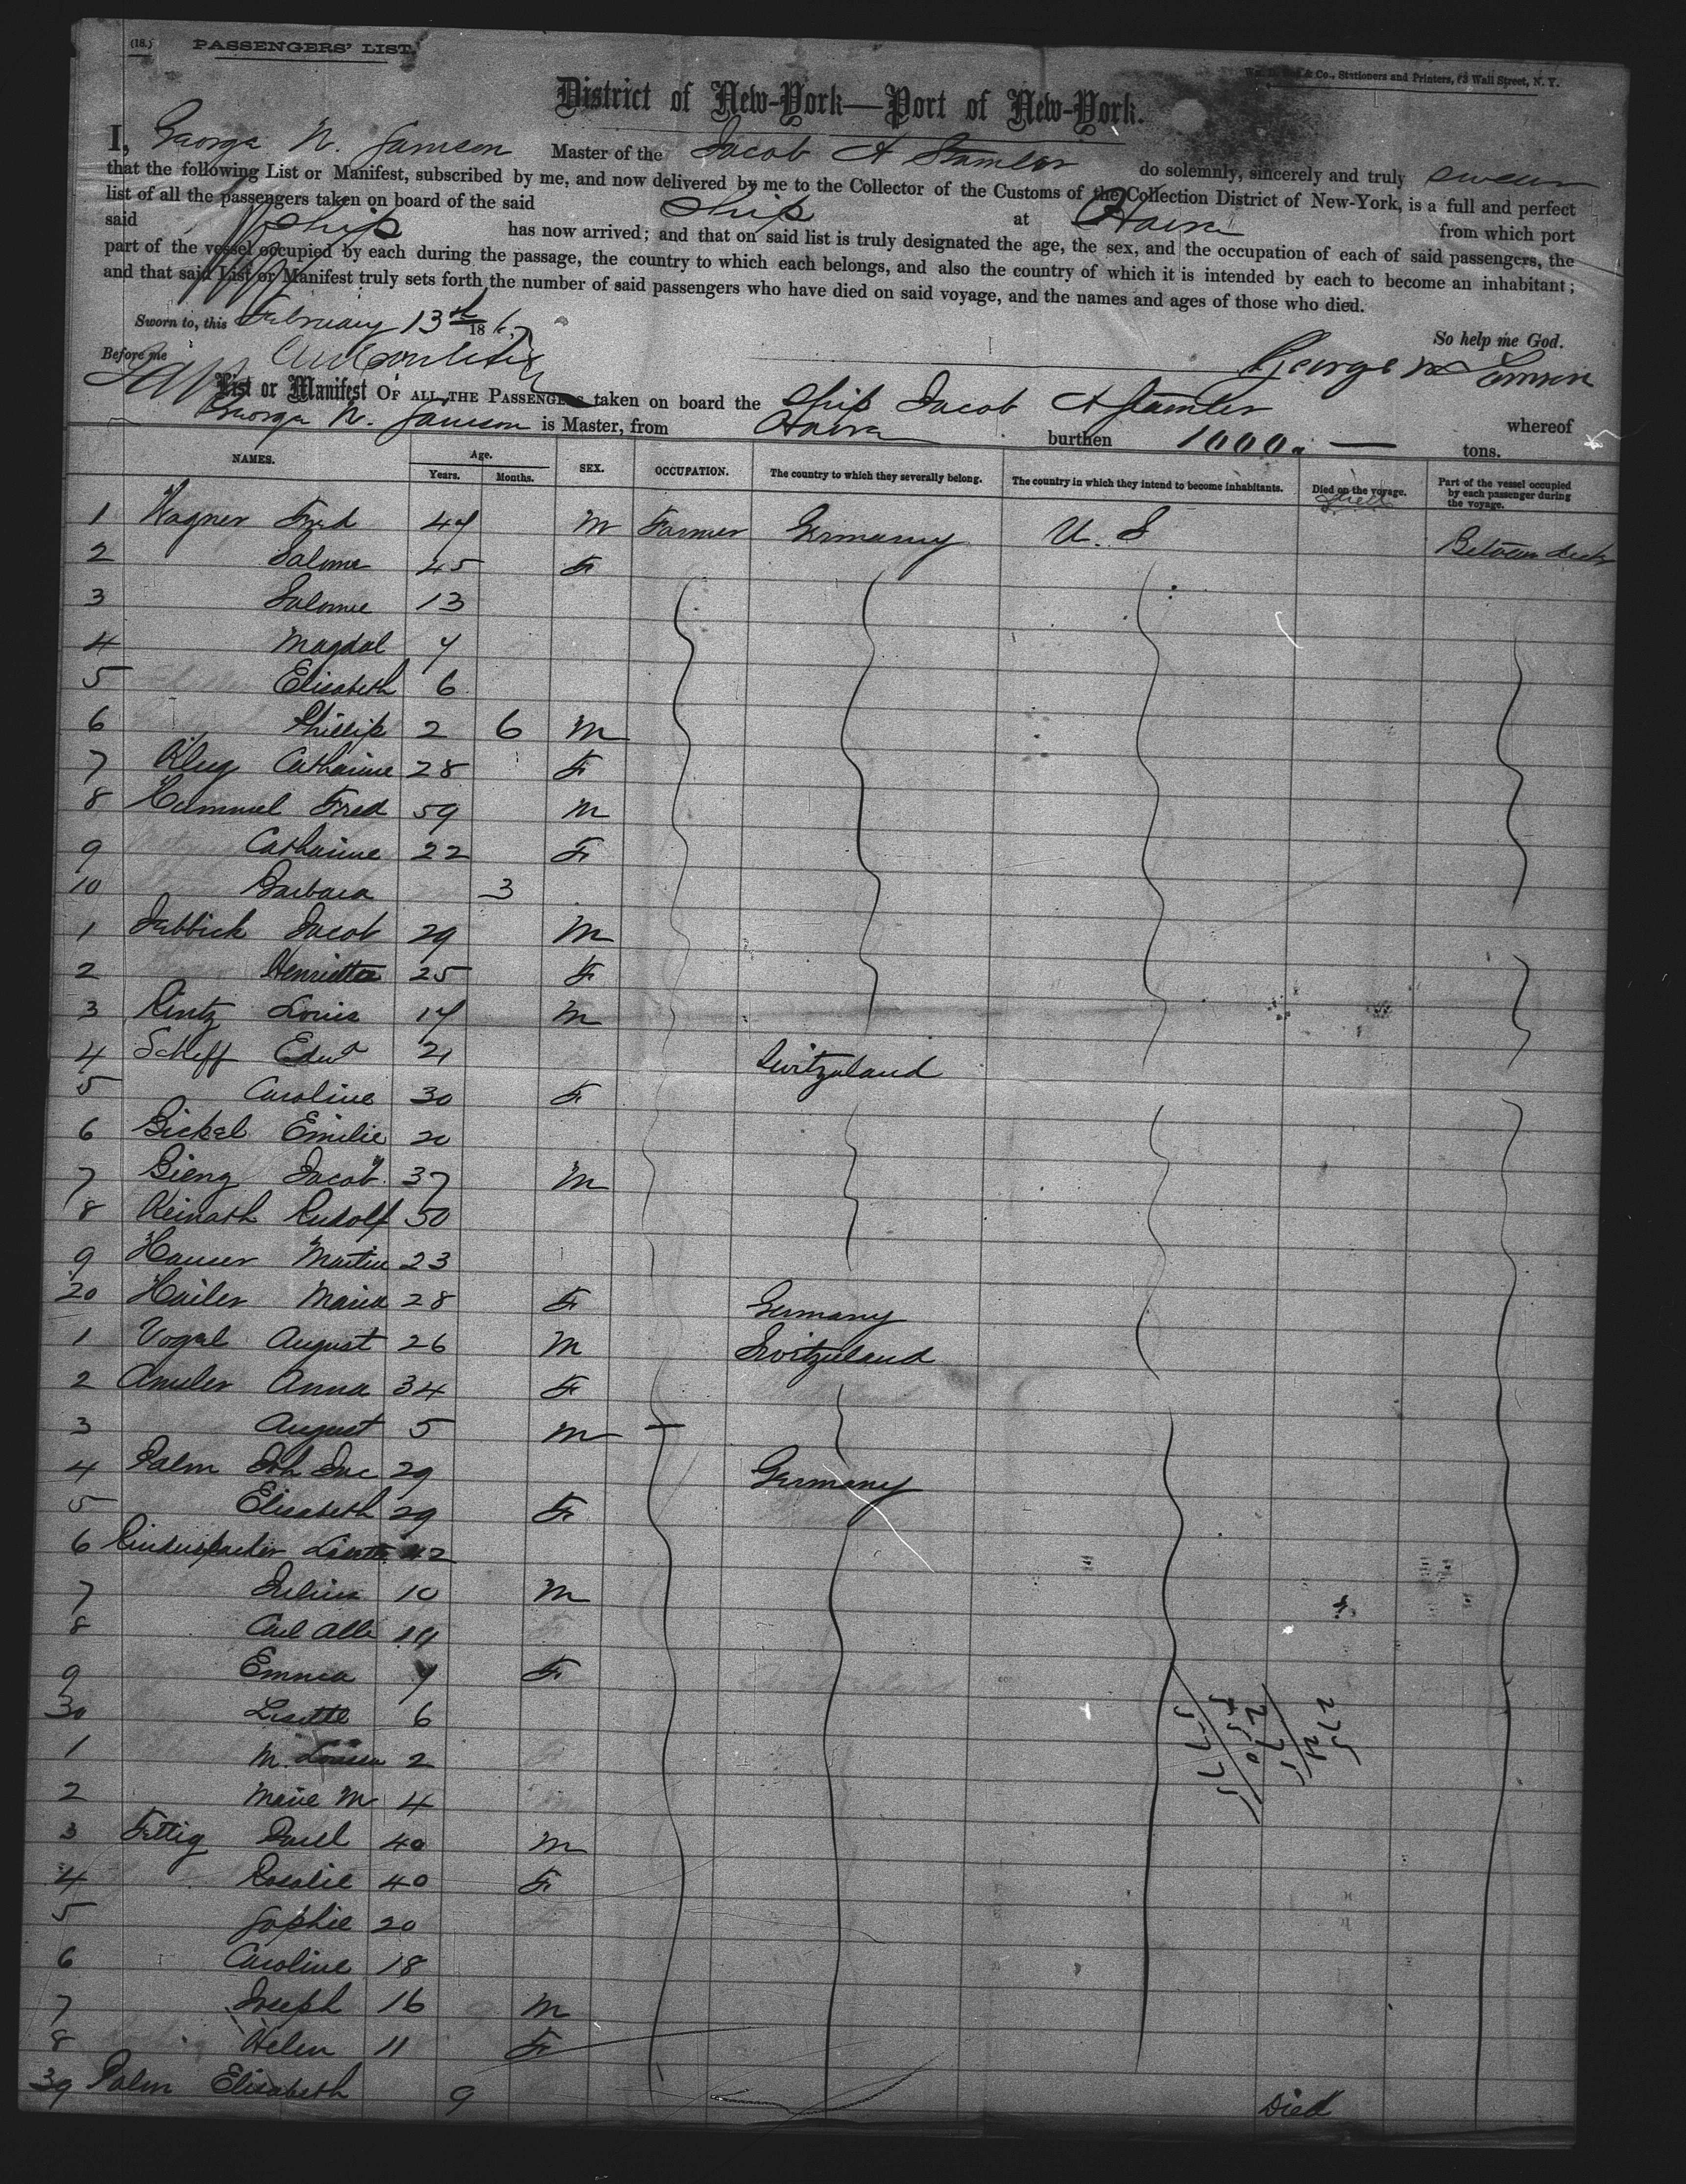 (18.) PASSENGERS' LIST.
& Co., Stationers and Printers, 13 Wall Street, N. Y.
District of New-York—Port of New-York.
I, George W. Jamson Master of the Jacob A Stamler do solemnly, sincerely and truly swear
that the following List or Manifest, subscribed by me, and now delivered by me to the Collector of the Customs of the Collection District of New-York, is a full and perfect
list of all the passengers taken on board of the said Ship at Havre from which port
said Ship has now arrived; and that on said list is truly designated the age, the sex, and the occupation of each of said passengers, the
part of the vessel occupied by each during the passage, the country to which each belongs, and also the country of which it is intended by each to become an inhabitant;
and that said List or Manifest truly sets forth the number of said passengers who have died on said voyage, and the names and ages of those who died.
Sworn to, this February 13th 1867
So help me God.
Before me
List or Manifest OF ALL THE PASSENGERS taken on board the Ship Jacob A Stamler whereof
George W. Jamson is Master, from Havre burthen 1000. — tons.
NAMES. Age. Years. Months. SEX. OCCUPATION. The country to which they severally belong. The country in which they intend to become inhabitants. Died on the voyage. Part of the vessel occupied by each passenger during the voyage.
1 Wagner Fred 47 M Farmer Germany U. S Between decks
2 Salome 45 F
3 Salome 13
4 Magdal 7
5 Elisabeth 6
6 Phillip 2 6 M
7 Klug Catharine 28 F
8 Hummel Fred 59 M
9 Catharine 22 F
10 Barbara 3
1 Jacob 29 M
2 Henrietta 25 F
3 Kintz Louis 17 M
4 Scheff Edwd 21 Switzerland
5 Caroline 30 F
6 Bickel Emilie 20
7 Bieng Jacob 37 M
8 Reinath Rudolf 50
9 Hauser Martin 23
20 Hailer Maria 28 F Germany
1 Vogel August 26 M Switzerland
2 Amsler Anna 34 F
3 August 5 M
4 Palm Joh 29 Germany
5 Elisabeth 29 F
6 42
7 Julius 10 M
8 Carl
9 Emma 7 F
30 Lisette 6
1 M. Louisa 2
2 Marie M 4
3 Fettig Paul 40 M
4 Rosalie 40 F
5 Sophie 20
6 Caroline 18
7 Joseph 16 M
8 Helen 11 F
39 Palm Elisabeth 9 Died